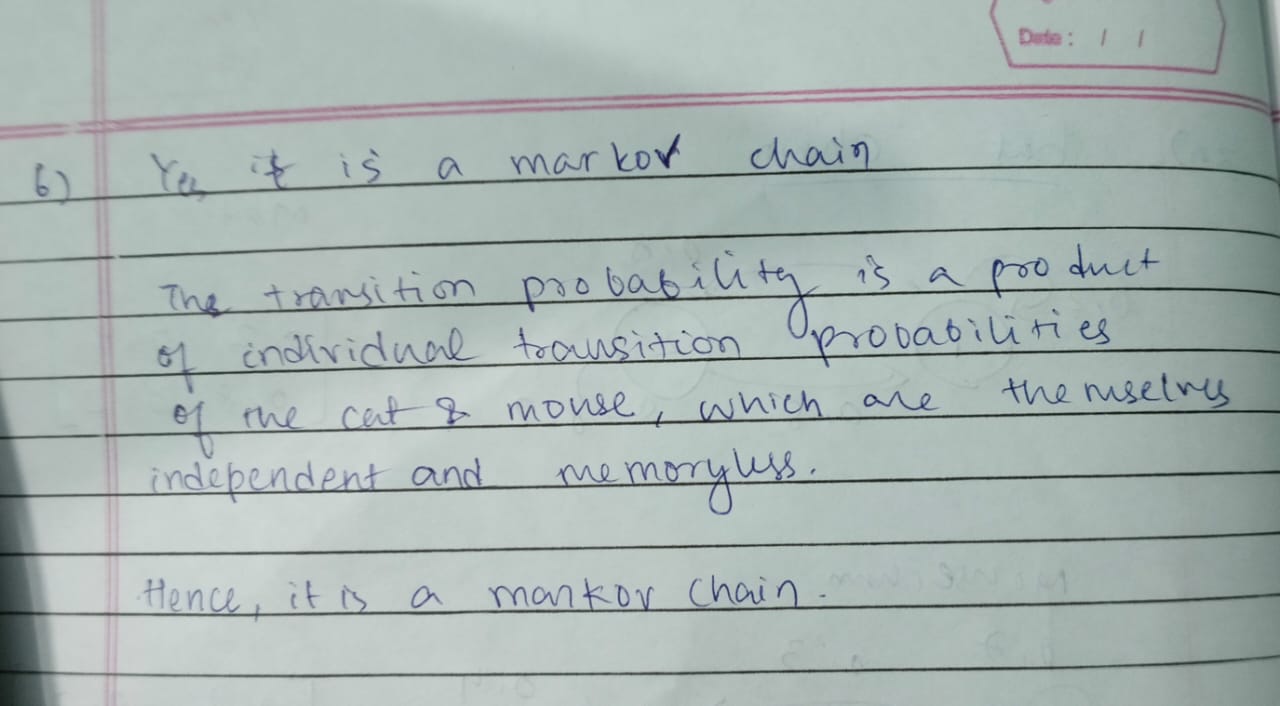 Date: / /
6) Yes it is a markov chain
The transition probability is a product
of individual transition probabilities
of the cat & mouse, which are themselves
independent and memoryless.
Hence, it is a markov chain.